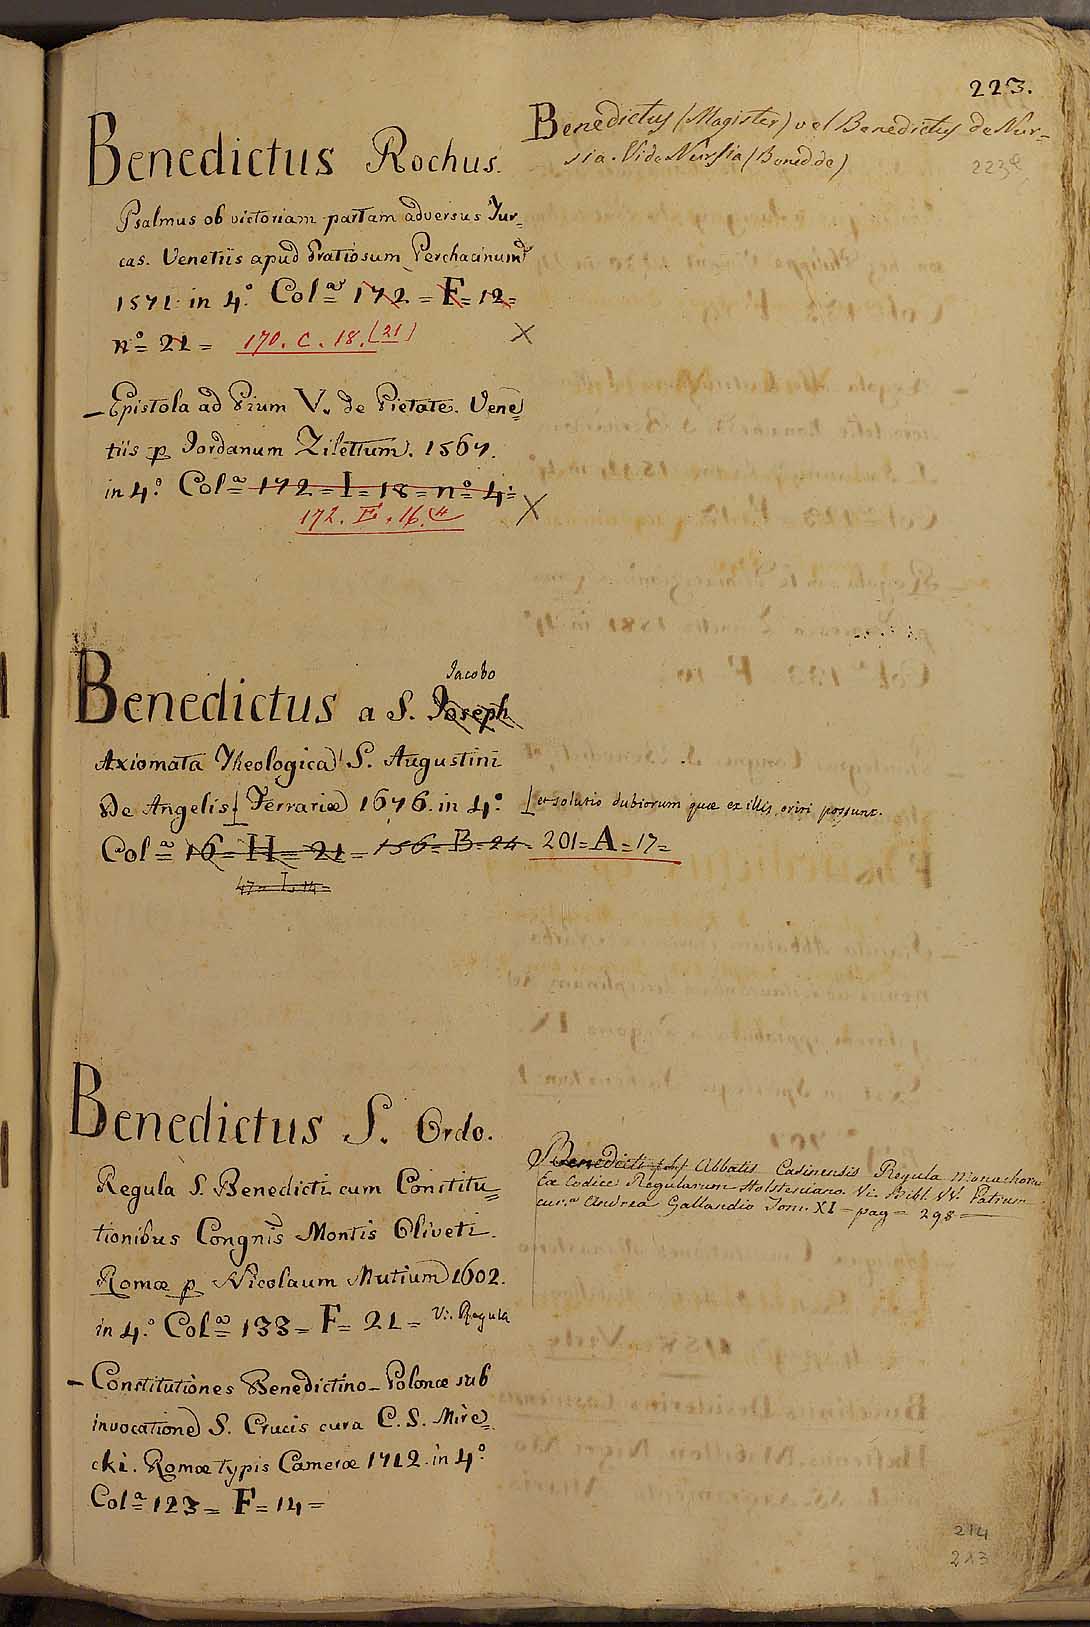 223.
223a
Benedictus Rochus.
Psalmus ob victoriam partam adversus Tur=
cas. Venetiis apud Gratiosum Perchacinum
1571. in 4.° Col.ª 172 = F = 12 =
n.° 21 = 170. C. 18. (21)
X
– Epistola ad Pium V. de Pietate. Vene=
tiis p Jordanum Zilettum. 1567.
in 4.° Col.ª 172 = I = 18 = n.° 4 =
172. E. 16. (4
X
Benedictus (Magister) vel Benedictus de Nur=
sia. Vide Nursia (Bened. de)
Jacobo
Benedictus a S. Joseph
Axiomata Theologica S. Augustini
De Angelis [ Ferrariæ 1676. in 4.°
[ et solutio dubiorum quæ ex illis oriri possunt.
Col.ª 16 = H = 21 = 156 = B = 24 = 201 = A = 17 =
47 = I = 14 =
Benedictus S. Ordo.
Regula S. Benedicti cum Constitu=
tionibus Congnis Montis Oliveti.
Romæ p Nicolaum Mutium 1602.
in 4.° Col.ª 133 = F = 21 = Vi. Regula
– Constitutiones Benedictino-Polonæ sub
invocatione S. Crucis cura C. S. Mire=
cki. Romæ typis Cameræ 1712. in 4.°
Col.ª 123 = F = 14 =
Benedicti Abbatis Casinensis Regula Monachorum
Ex Codice Regularum Holsteniano. Vi. Bibl. VV. Patrum
cur.ª Andrea Gallandio Tom. XI = pag = 298 =
214
213